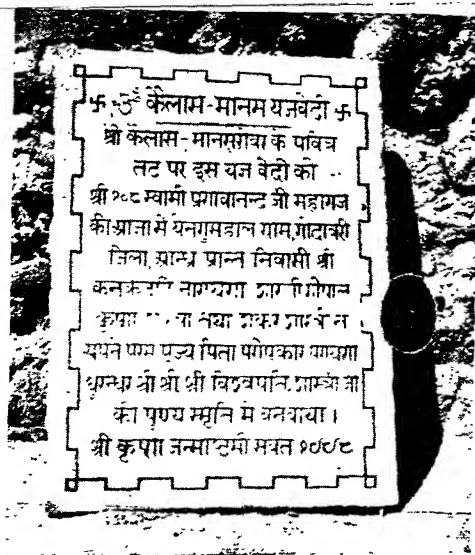 卐 ॐ कैलास-मानस यज्ञवेदी 卐
श्री कैलास-मानसरोवर के पवित्र
तट पर इस यज्ञ वेदी को
श्री १०८ स्वामी प्रणवानन्द जी महाराज
की आज्ञा से येनुगुमहाल ग्राम, गोदावरी
जिला, आन्ध्र प्रान्त निवासी श्री
कनकदण्डि नारायण
कृष्ण तथा शंकर शास्त्री ने
अपने परम पूज्य पिता परोपकार परायण
धुरन्धर श्री श्री श्री विश्वपति शास्त्री जी
की पुण्य स्मृति में बनवाया।
श्री कृष्ण जन्माष्टमी संवत